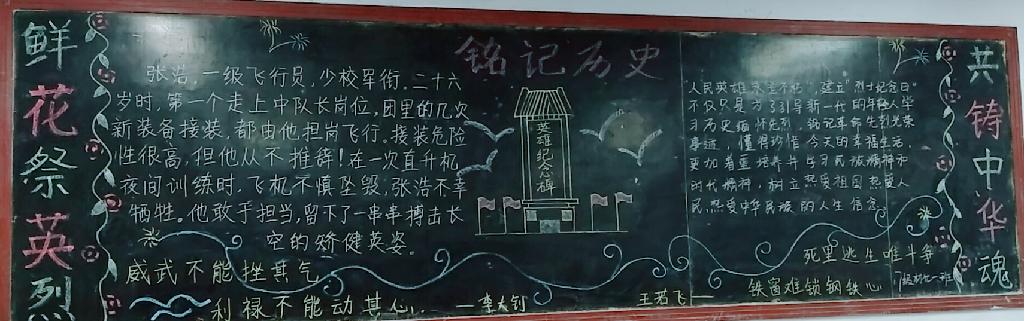 鲜花祭英烈
铭记历史
张浩,一级飞行员,少校军衔.二十六
岁时,第一个走上中队长岗位,团里的几次
新装备接装,都由他担岗飞行.接装危险
性很高,但他从不推辞!在一次直升机
夜间训练时,飞机不慎坠毁,张浩不幸
牺牲。他敢于担当,留下了一串串搏击长
空的矫健英姿。
威武不能挫其气
利禄不能动其心. —李大钊
英雄纪念碑
人民英雄永垂不朽",建立"烈士纪念日"
不仅只是为了引导新一代的年轻人学
习历史缅怀先烈,铭记革命先烈光荣
事迹,懂得珍惜今天的幸福生活,
更加着重培养并学习民族精神和
时代精神,树立热爱祖国热爱人
民热爱中华民族的人生信念。
死里逃生唯斗争
王若飞—
铁窗难锁钢铁心
共铸中华魂